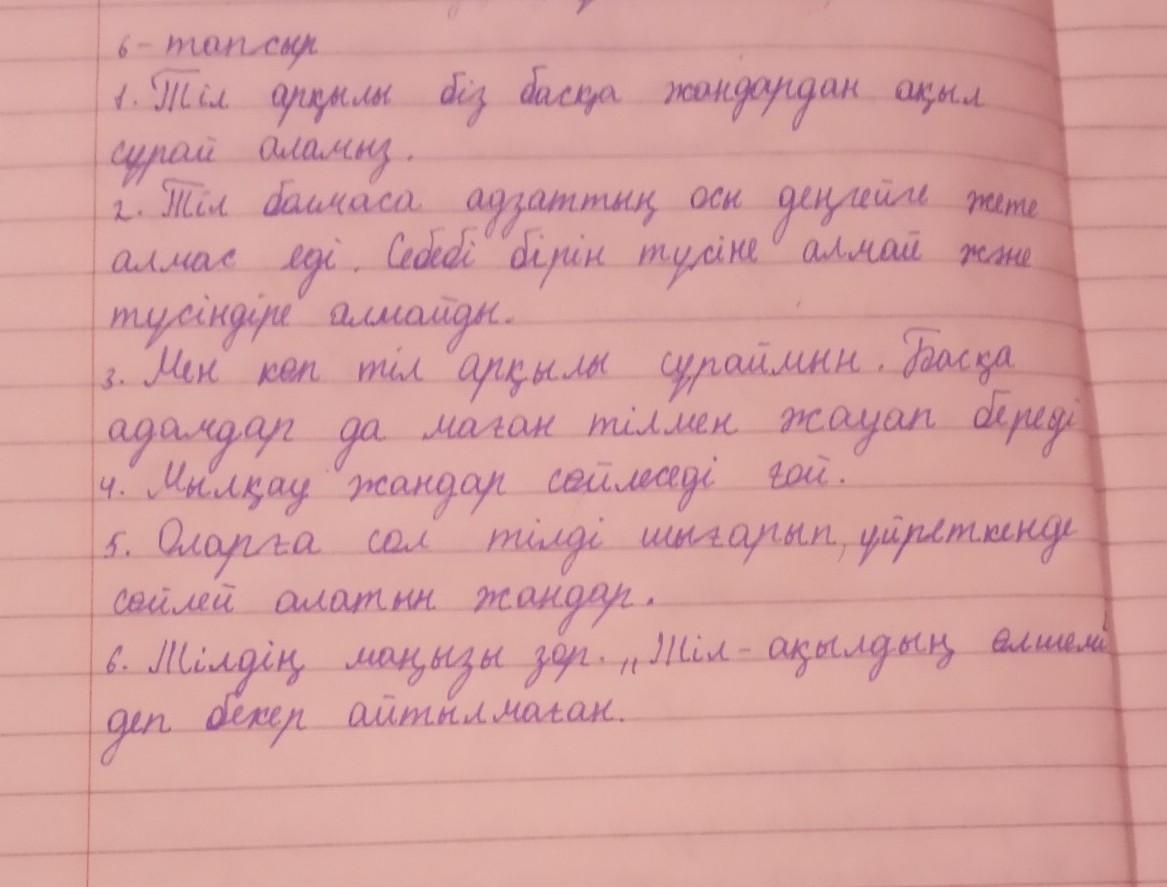 6-тапсыр
1. Тіл арқылы біз басқа жандардан ақыл
сұрай аламыз.
2. Тіл болмаса адзаттың осы деңгейге жете
алмас еді. Себебі бірін түсіне алмай және
түсіндіре алмайды.
3. Мен көп тіл арқылы сұраймын. Басқа
адамдар да маған тілмен жауап береді
4. Мылқау жандар сөйлеседі ғой.
5. Оларға сол тілді шығарып, үйреткенде
сөйлей алатын жандар.
6. Тілдің маңызы зор. „Тіл - ақылдың өлшемі
деп бекер айтылмаған.